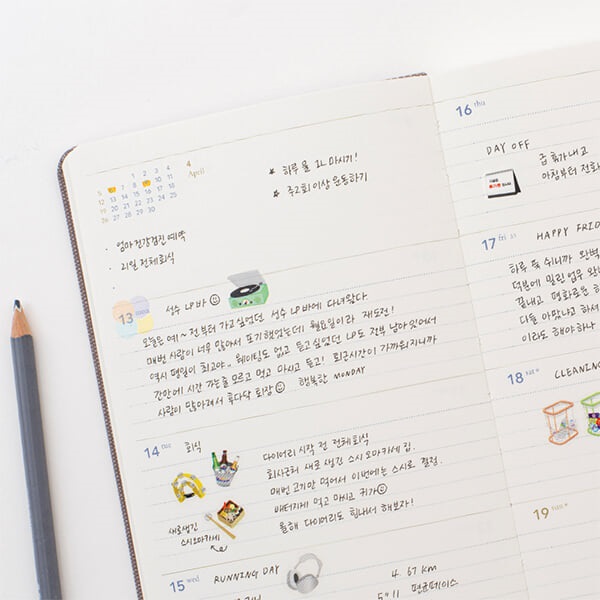 4
April
1 2 3 4
5 7 8 10 11
12 13 14 15 16 17 18
19 20 21 22 23 24 25
26 27 28 29 30
* 하루 물 2L 마시기!
* 주2회이상 운동하기
· 엄마 건강검진 예약
· 21일 전체회식
·
13
성수 LP바
오늘은 예~ 전부터 가고싶었던 성수 LP바에 다녀왔다
매번 사람이 너무 많아서 포기했었는데 월요일이라 재도전!
역시 평일이 최고야.. 웨이팅도 없고 듣고싶었던 LP도 전부 남아있어서
간만에 시간 가는줄 모르고 먹고 마시고 듣고! 퇴근시간이 가까워지니까
사람이 많아져서 후다닥 퇴장 행복한 MONDAY
14 tue
회식
다이어리 시작 전 전체회식
회사근처 새로 생긴 스시오마카세집.
매번 고기만 먹어서 이번에는 스시로 결정.
배터지게 먹고 마시고 귀가
올해 다이어리도 힘내서 해보자!
새로생긴
스시오마카세
15 wed
RUNNING DAY
4. 67 km
5'11 평균페이스
16 thu
DAY OFF
아침부터 전화
17 fri
HAPPY FRID
하루 푹 쉬니까 완벽
덕분에 밀린 업무
끝내고 평화로운
다들 아팠냐고 하시
이라도 해야하나
18 sat
CLEANING
19 sun